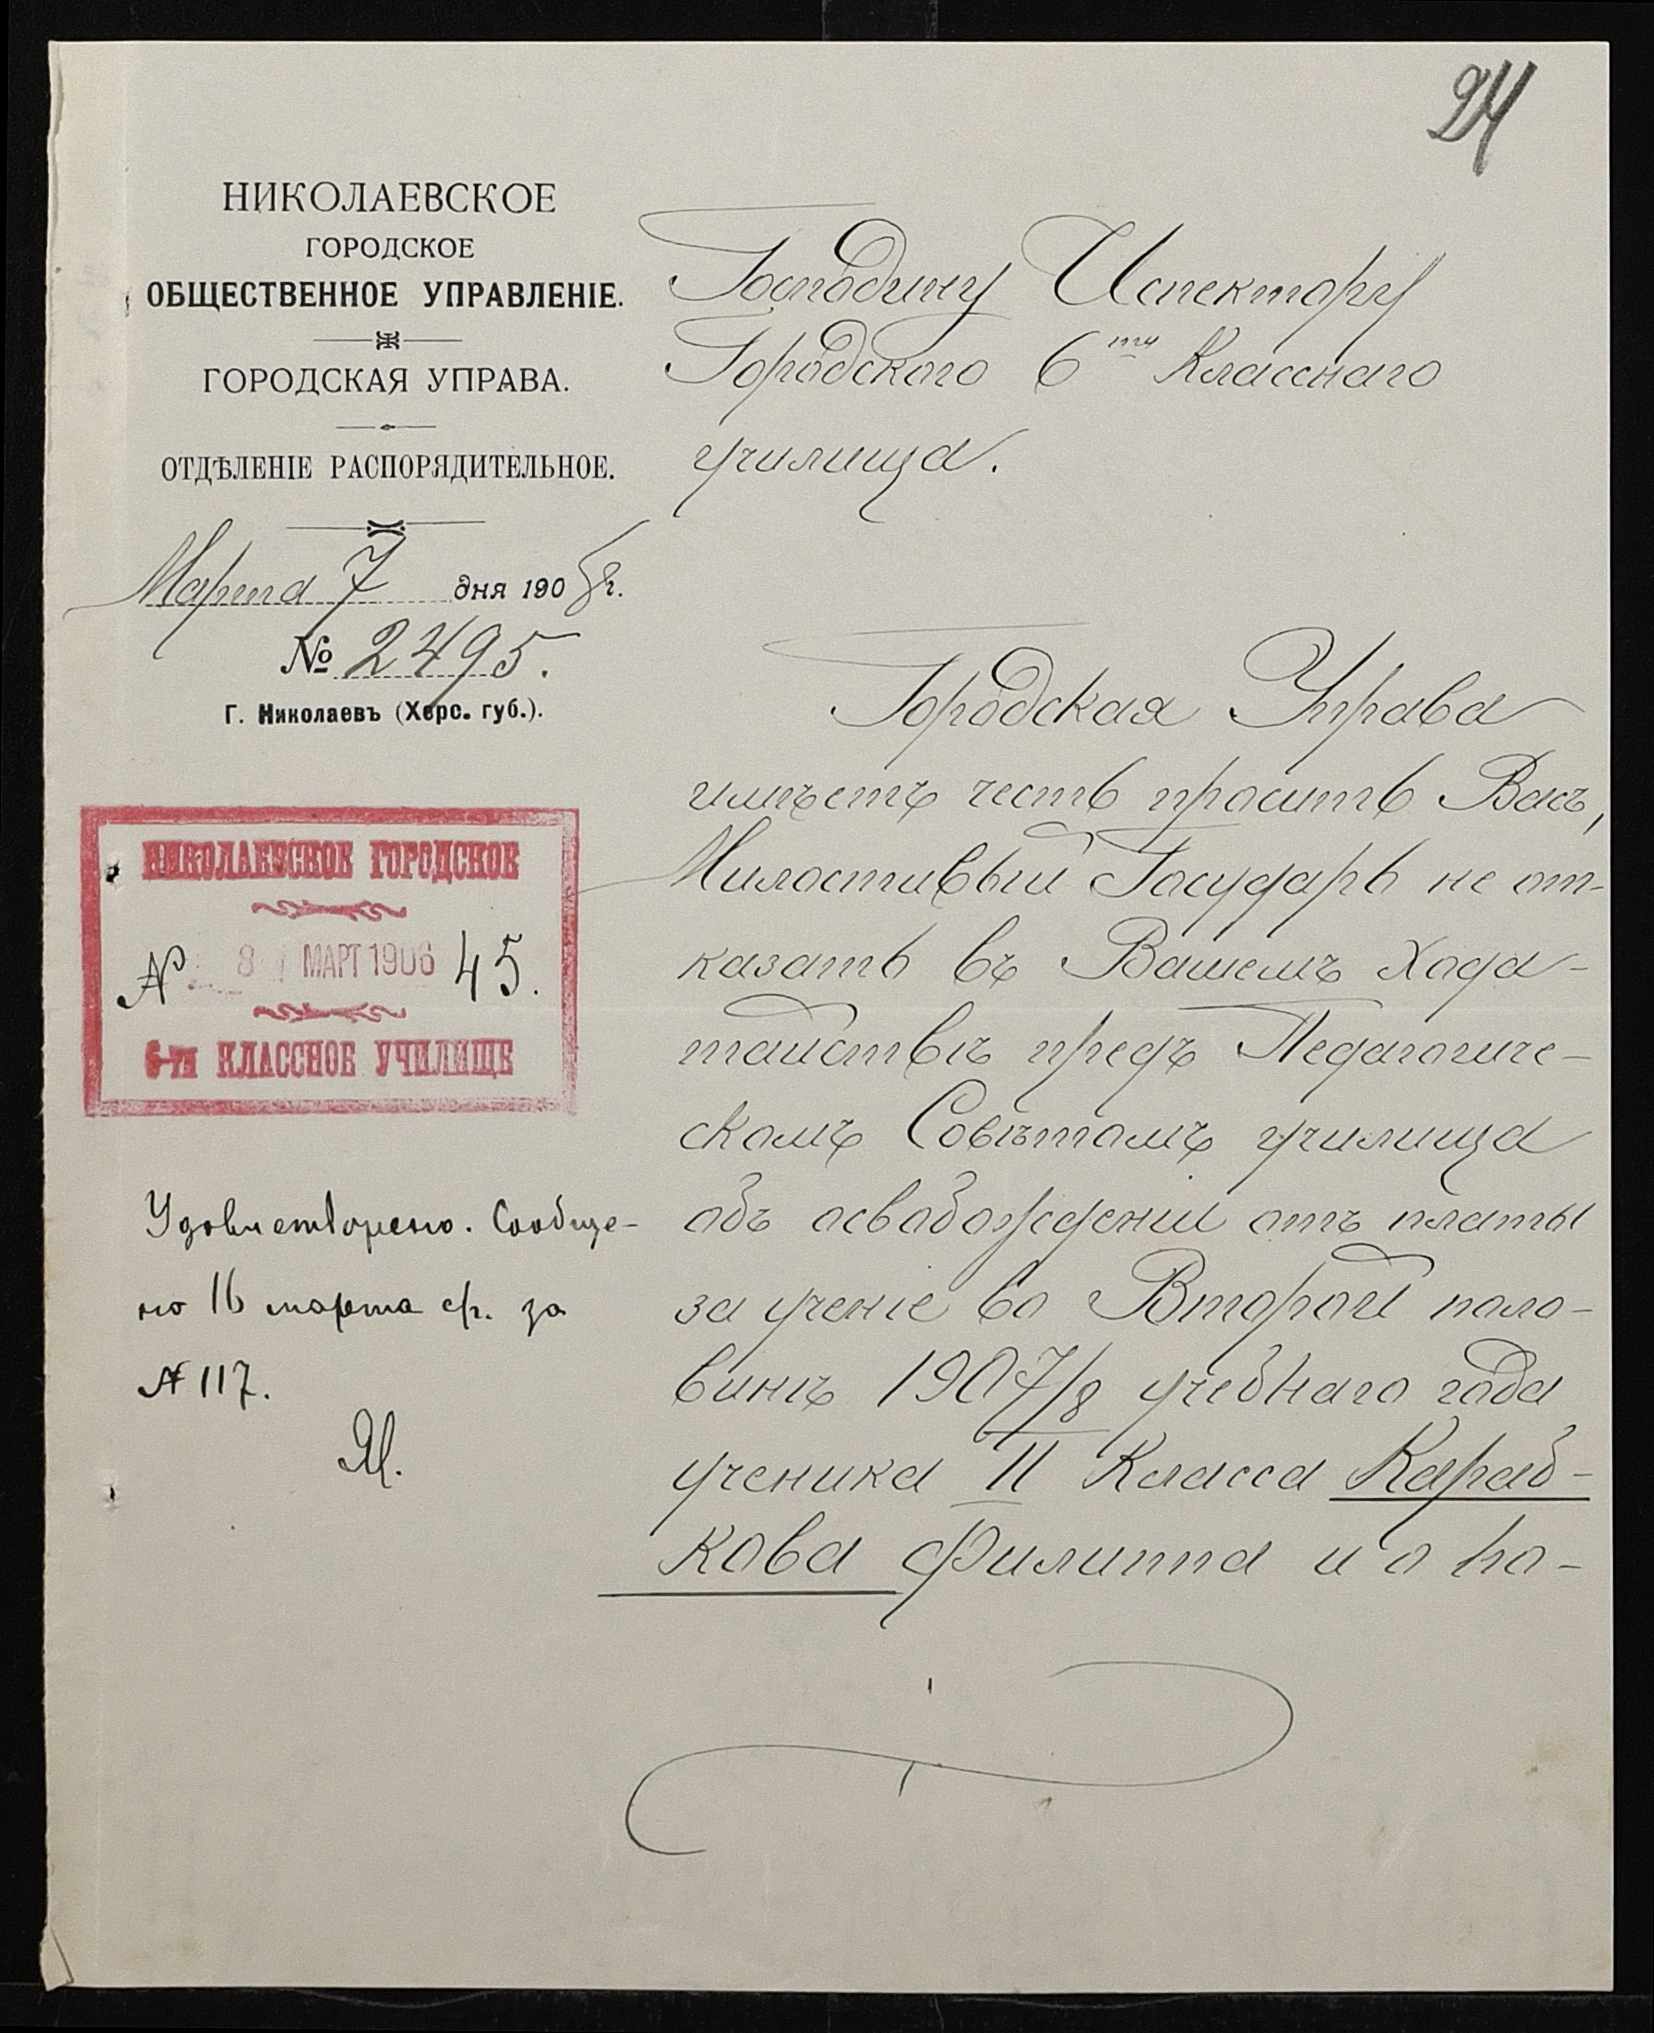 24
НИКОЛАЕВСКОЕ
ГОРОДСКОЕ
ОБЩЕСТВЕННОЕ УПРАВЛЕНІЕ.
ГОРОДСКАЯ УПРАВА.
ОТДѢЛЕНІЕ РАСПОРЯДИТЕЛЬНОЕ.
Марта 7 дня 1908 г.
№ 2495.
Г. Николаевъ (Херс. губ.).
НИКОЛАЕВСКОЕ ГОРОДСКОЕ
№ 8 МАРТ 1906 45.
6-ти КЛАССНОЕ УЧИЛИЩЕ
Удовлетворено. Сообще-
но 16 марта ср. за
№ 117.
Господину Испектору
Городского 6ти Класснаго
училища.
Городская Управа
имѣетъ честь просить Васъ,
Милостивый Государь не от-
казать въ Вашемъ хода-
тайствѣ предъ Педагогиче-
скомъ Совѣтомъ училища
объ освабожденіи отъ платы
за ученіе во Второй поло-
винѣ 1907/8 учебнаго года
ученика II Класса Караб-
кова Филиппа и о по-